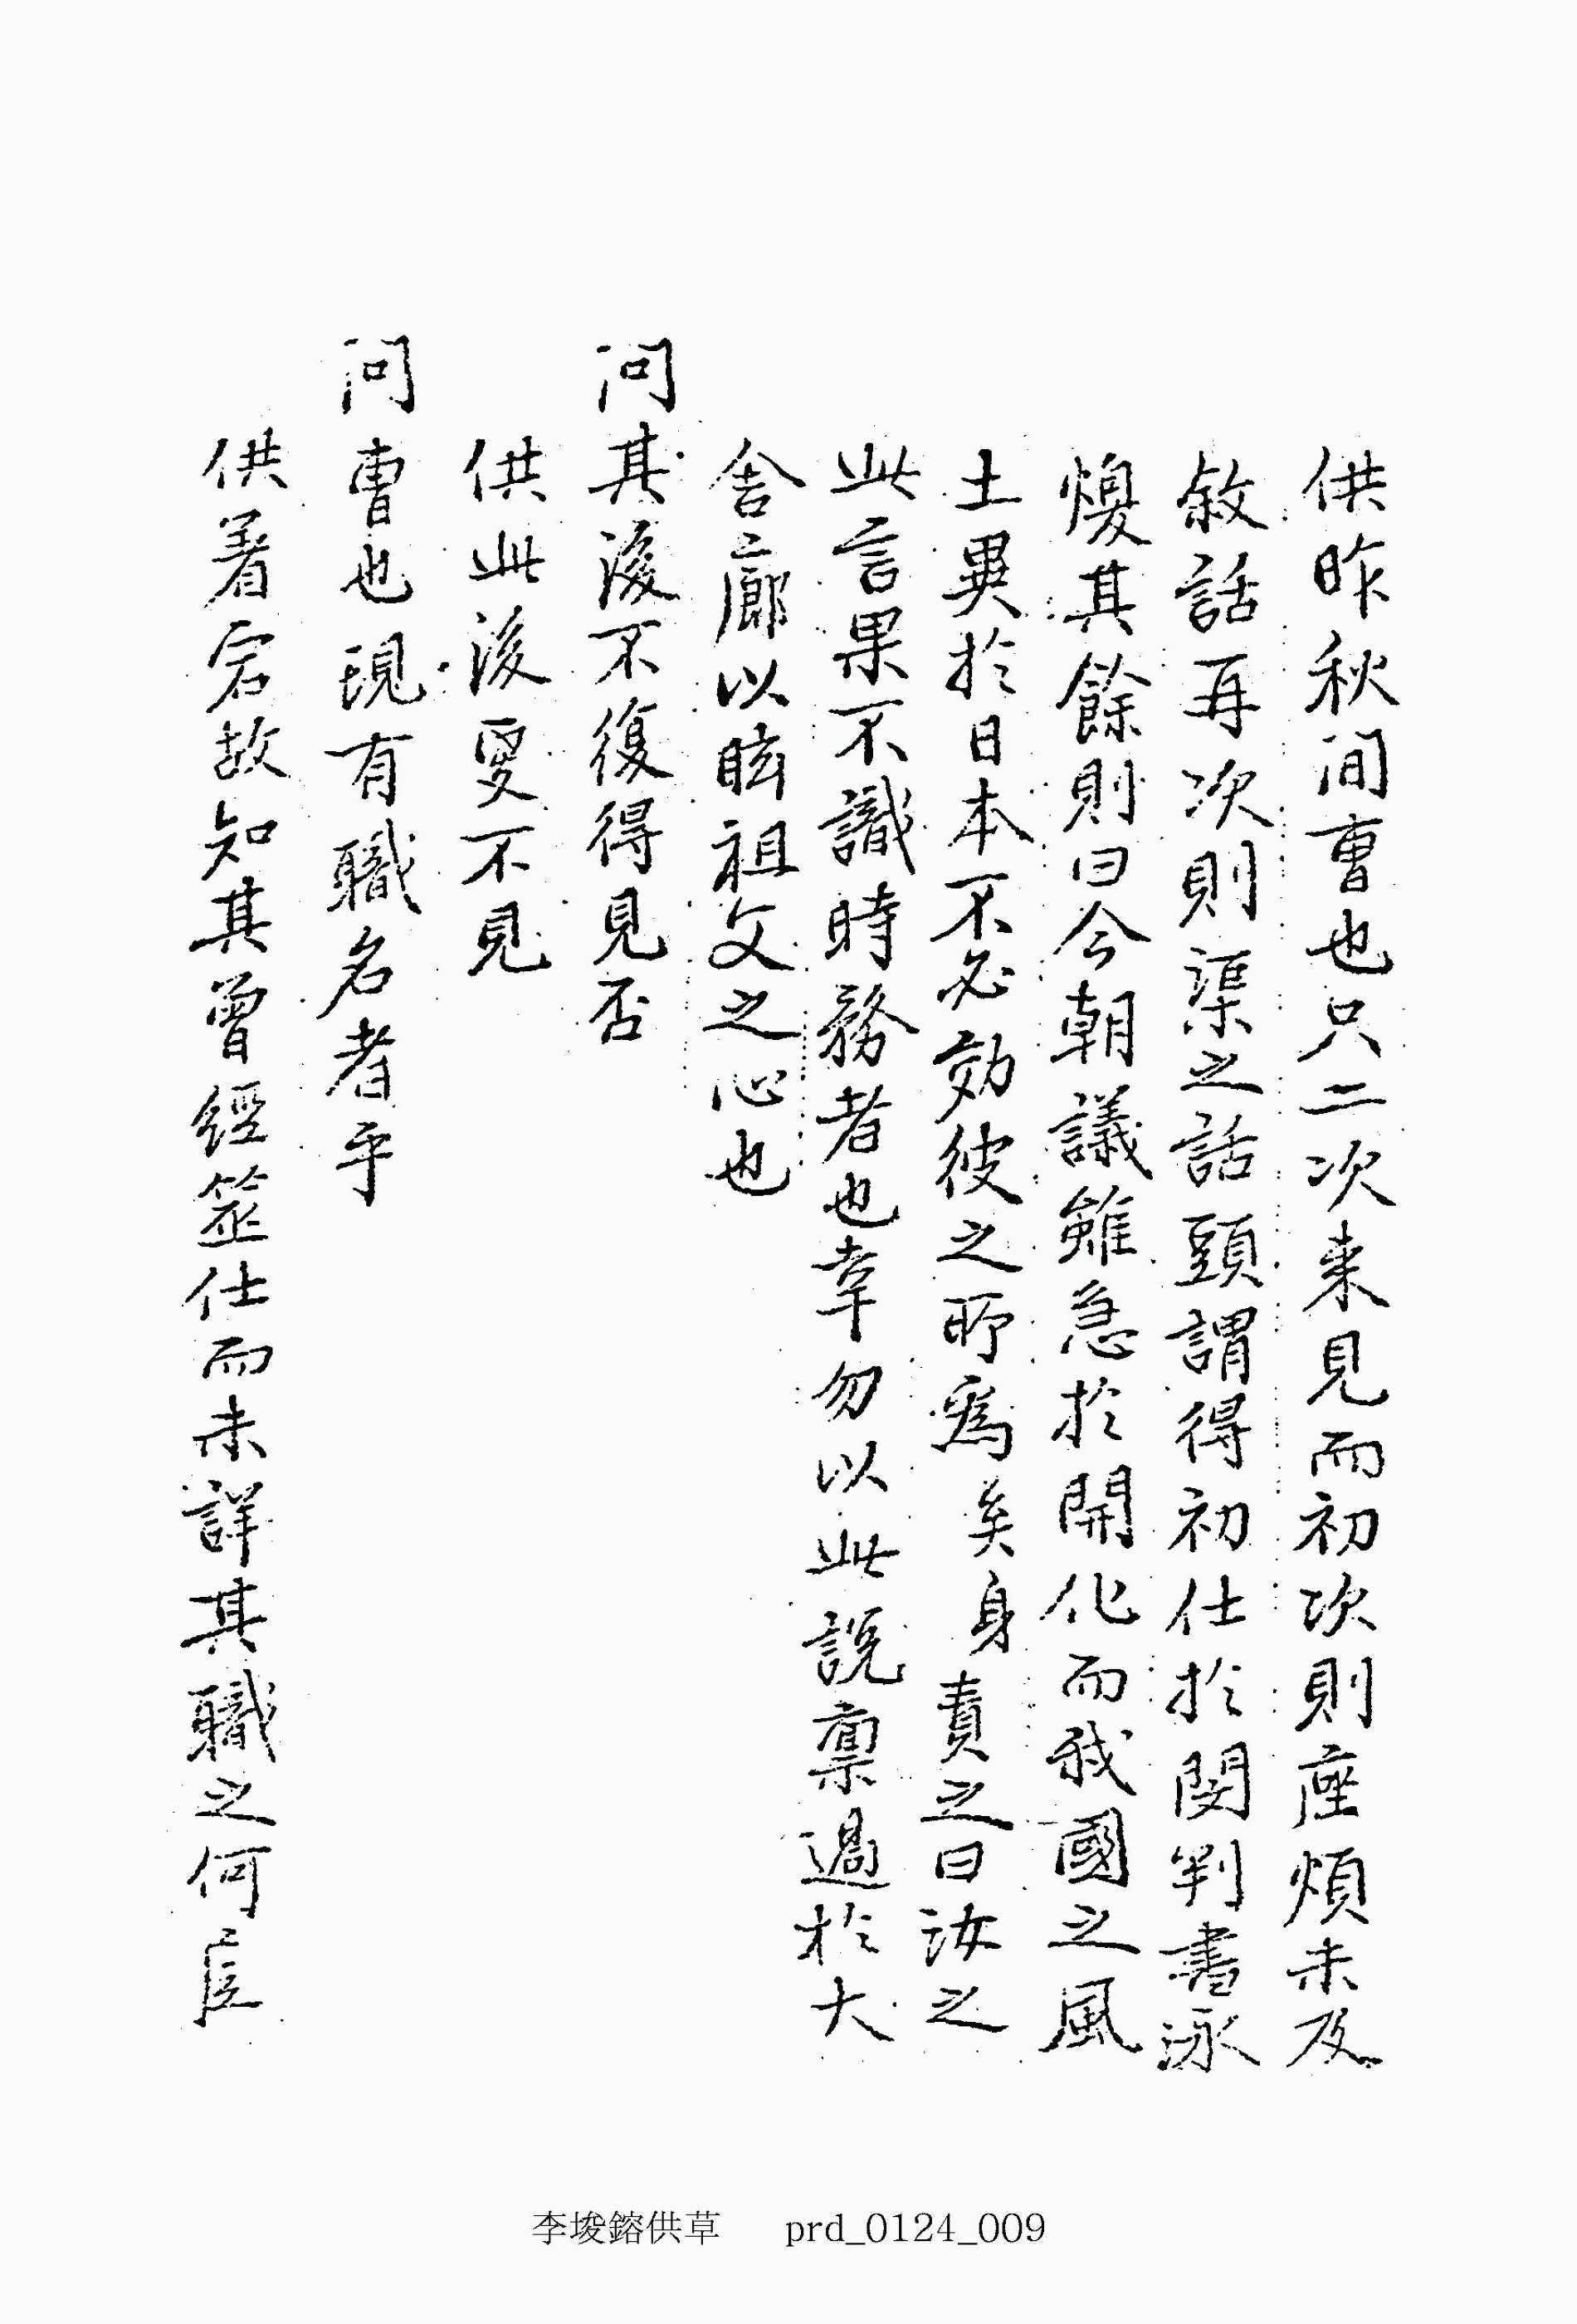 供昨秋間曺也只二次来見而初次則座煩未及
敘話再次則渠之話頭謂得初仕於閔判書泳
煥其餘則曰今朝議雖急於開化而我國之風
土異於日本不必効彼之所爲矣身責之曰汝之
此言果不識時務者也幸勿以此說禀過於大
舍廊以眩祖父之心也
問其後不復得見否
供此後更不見
問曺也現有職名者乎
供着宕故知其曾經筮仕而未詳其職之何
李埈鎔供草 prd_0124_009